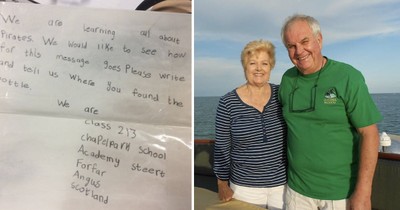 We are learning all about
Pirates. We would like to see how
far this message goes Please write
and tell us where you found the
bottle.
We are
class 2/3
Chapelpark School
Academy steert
Forfar
Angus
Scotland